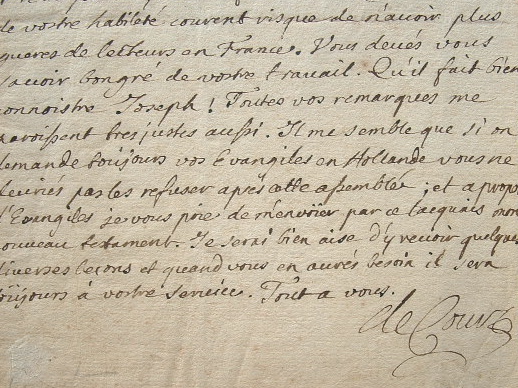 de vostre habileté courent risque de n'avoir plus
gueres de lecteurs en France. Vous devés vous
sçavoir bon gré de vostre travail. Qu'il fait bien
connoistre Joseph! Toutes vos remarques me
paroissent tres justes aussi. Il me semble que si on
demande toûjours vos Evangiles en Hollande vous ne
devriés pas les refuser aprés cette assemblée; et a propos
d'Evangiles je vous prie de m'envoier par ce lacquais mon
nouveau testament. Je serai bien aise d'y revoir quelques
diverses leçons et quand vous en aurés besoin il sera
toûjours à vostre service. Tout a vous.
de Court